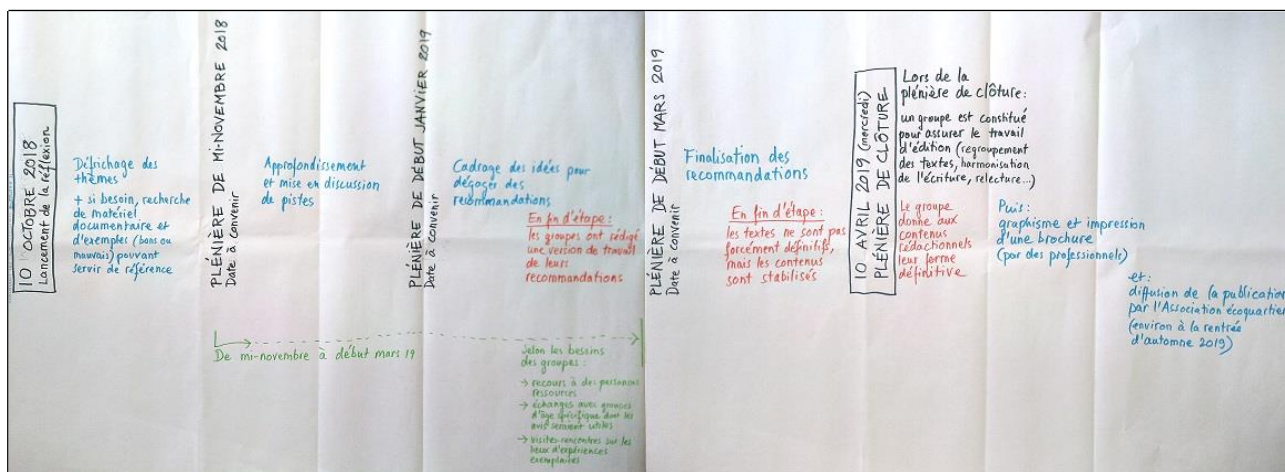 10 OCTOBRE 2018
Lancement de la réflexion
Défrichage des
thèmes
+ si besoin, recherche
de matériel
documentaire et
d'exemples (bons ou
mauvais) pouvant
servir de référence
PLÉNIÈRE DE MI-NOVEMBRE 2018
Date à convenir
Approfondissement
et mise en discussion
de pistes
PLÉNIÈRE DE DÉBUT JANVIER 2019
Date à convenir
Cadrage des idées pour
dégager des
recommandations
En fin d'étape :
les groupes ont rédigé
une version de travail
de leurs
recommandations
De mi-novembre à début mars 19
Selon les besoins
des groupes :
→ recours à des personnes
ressources
→ échanges avec groupes
d'âge spécifique dont les
avis seraient utiles
→ visites-rencontres sur les
lieux d'expériences
exemplaires
PLÉNIÈRE DE DÉBUT MARS 2019
Date à convenir
Finalisation des
recommandations
En fin d'étape :
les textes ne sont pas
forcément définitifs,
mais les contenus
sont stabilisés
10 AVRIL 2019 (mercredi)
PLÉNIÈRE DE CLÔTURE
Lors de la
plénière de clôture :
un groupe est constitué
pour assurer le travail
d'édition (regroupement
des textes, harmonisation
de l'écriture, relecture...)
Le groupe
donne aux
contenus
rédactionnels
leur forme
définitive
Puis :
graphisme et impression
d'une brochure
(par des professionnels)
et :
diffusion de la publication
par l'Association écoquartier
(environ à la rentrée
d'automne 2019)